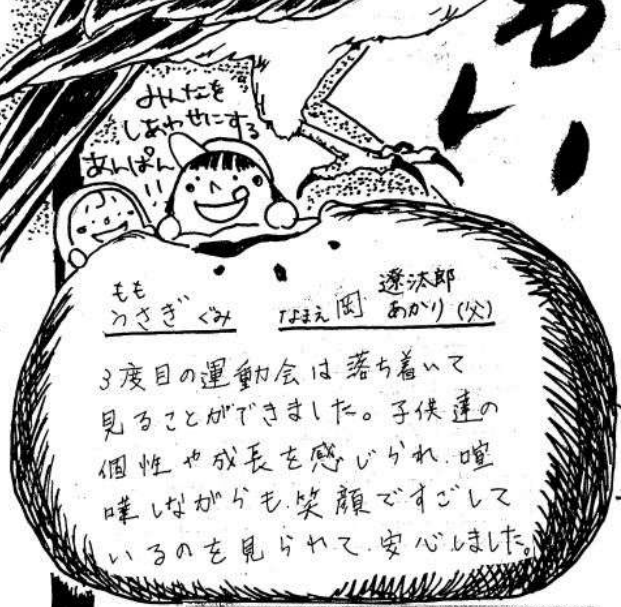 みんなを
しあわせにする
あんぱん!!
もも
うさぎ ぐみ
なまえ 岡 遼汰郎
あかり (父)
3度目の運動会は落ち着いて
見ることができました。子供達の
個性や成長を感じられ、喧
嘩しながらも、笑顔ですごして
いるのを見られて、安心しました。